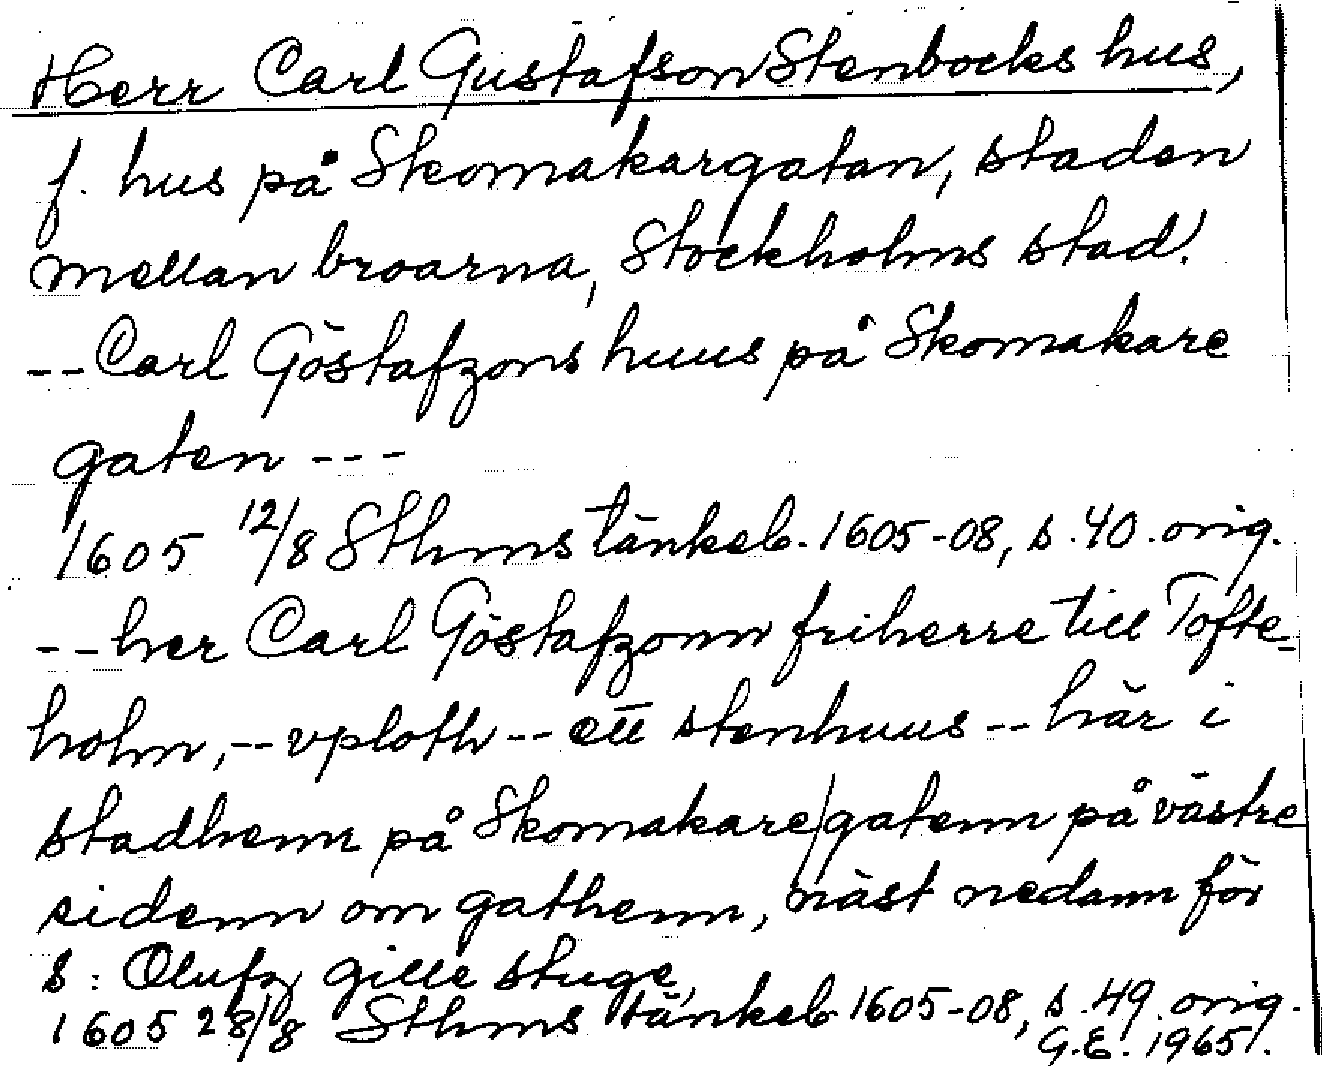 Herr Carl Gustafson Stenbocks hus,
f. hus på Skomakargatan, staden
mellan broarna, Stockholms stad.
-- Carl Göstafzons huus på Skomakare
gaten ---
1605 12/8 Sthms tänkeb. 1605-08, s. 40. orig.
-- her Carl Göstafzonn friherre till Tofte-
holm, -- vploth -- ett stenhuus -- här i
stadhenn på Skomakare/gatenn på västre
sidenn om gathenn, näst nedann för
S: Olufz gille stuge,
1605 28/8 Sthms tänkeb. 1605-08, s. 49. orig.
G.E. 1965.